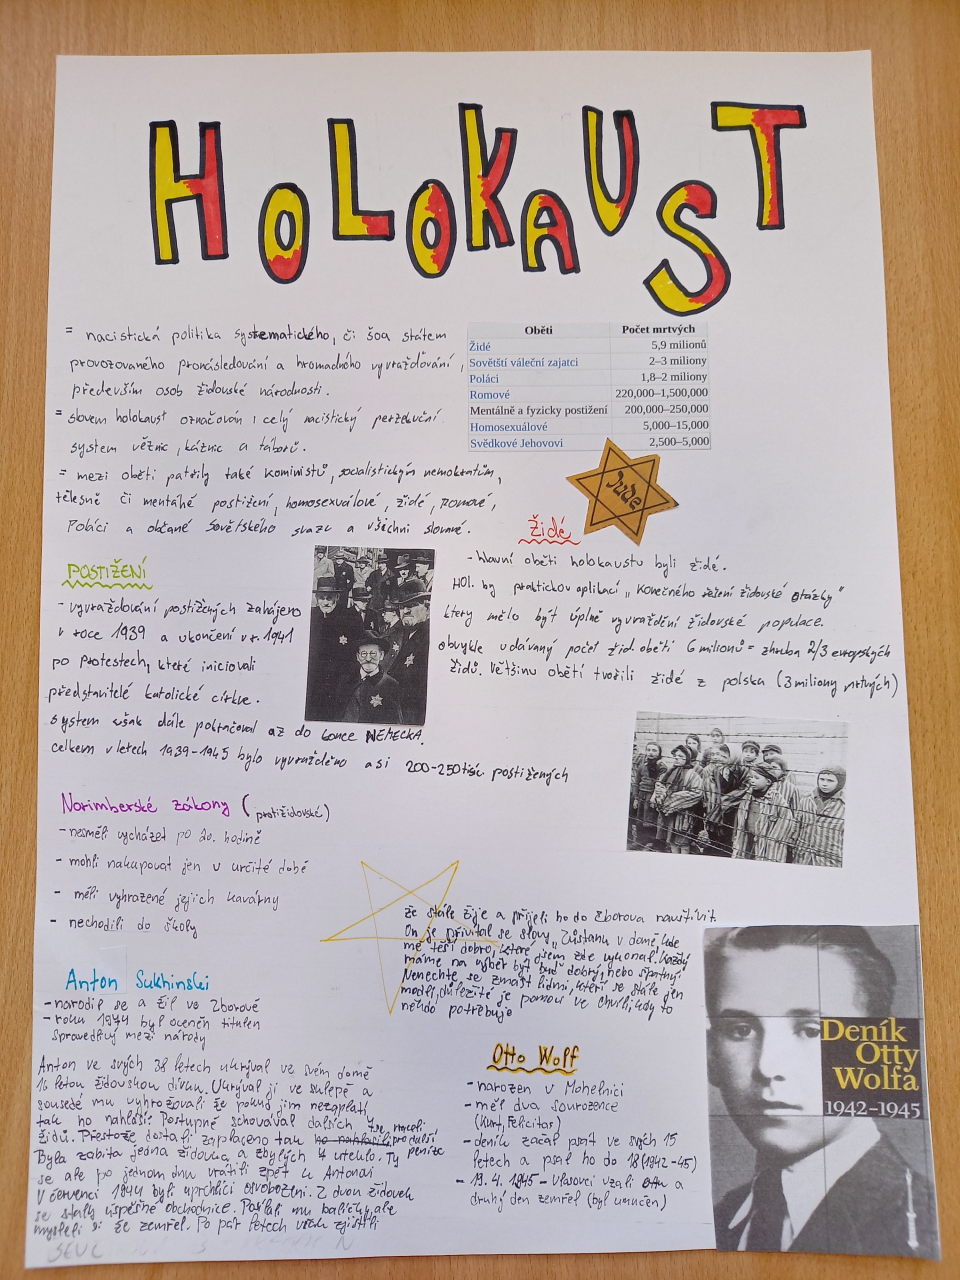 HOLOKAUST
= nacistická politika systematického, či šoa státem
provozovaného pronásledování a hromadného vyvražďování,
především osob židovské národnosti.
= slovem holokaust označován i celý nacistický perzekuční
system věznic, káznic a táborů.
= mezi oběti patřily také kominístů, socialistickým nemokratům,
tělesně či mentálně postižení, homosexuálové, židé, Romové,
Poláci a občané Sovětského svazu a všichni slované.
Oběti Počet mrtvých
Židé 5,9 milionů
Sovětští váleční zajatci 2–3 miliony
Poláci 1,8–2 miliony
Romové 220,000–1,500,000
Mentálně a fyzicky postižení 200,000–250,000
Homosexuálové 5,000–15,000
Svědkové Jehovovi 2,500–5,000
Jude
Židé
- hlavní oběti holokaustu byli židé.
Hol. by praktickou aplikací „konečného řešení židovské otázky"
který mělo být úplné vyvraždění židovské populace.
obvykle udávaný počet žid. obětí 6 milionů = zhruba 2/3 evropských
židů. Většinu obětí tvořili židé z polska (3 miliony mrtvých)
POSTIŽENÍ
- vyvražďování postižených zahájeno
v roce 1939 a ukončení v r. 1941
po protestech, které iniciovali
představitelé katolické církve.
system však dále pokračoval až do konce NĚMECKA.
celkem v letech 1939-1945 bylo vyvražděno asi 200-250 tisíc postižených
Norimberské zákony (protižidovské)
- nesměli vycházet po 20. hodině
- mohli nakupovat jen v určité době
- měli vyhrazené jejich kavárny
- nechodili do školy
Anton Sukhinski
- narodil se a žil ve Zborově
- roku 1974 byl oceněn titulem
spravedlivý mezi národy
Anton ve svých 38 letech ukrýval ve svém domě
16 letou židovskou dívku. Ukrýval ji ve sklepě a
sousedé mu vyhrožovali že pokud jim nezaplatí
tak ho nahlásí. Postupně schovával dalších 4
židů. Přestože dostali zaplaceno tak ho nahlásili
Byla zabita jedna židovka a zbylých 4 uteklo. Ty
se ale po jednom dnu vrátili zpět k Antonovi
V červenci 1944 byli uprchlíci osvobozeni. Z dvou židovek
se staly úspěšné obchodnice. Posílali mu balíčky, ale
mysleli si že zemřel. Po pár letech však zjistili
že stále žije a přijeli ho do Zborova navštívit.
On je přivítal se slovy „Zůstanu v domě, kde
mě těší dobro, které jsem zde vykonal. Každý
máme na výběr být buď dobrý, nebo špatný.
Nenechte se zmást lidmi, kteří se stále jen
modlí, důležité je pomoci ve chvíli, kdy to
někdo potřebuje
Otto Wolf
- narozen v Mohelnici
- měl dva sourozence
(Kurt, Felicitas)
- deník začal psát ve svých 15
letech a psal ho do 18 (1942-45)
- 19. 4. 1945 - vlasovci vzali Ottu a
druhý den zemřel (byl umučen)
Deník
Otty
Wolfa
1942–1945